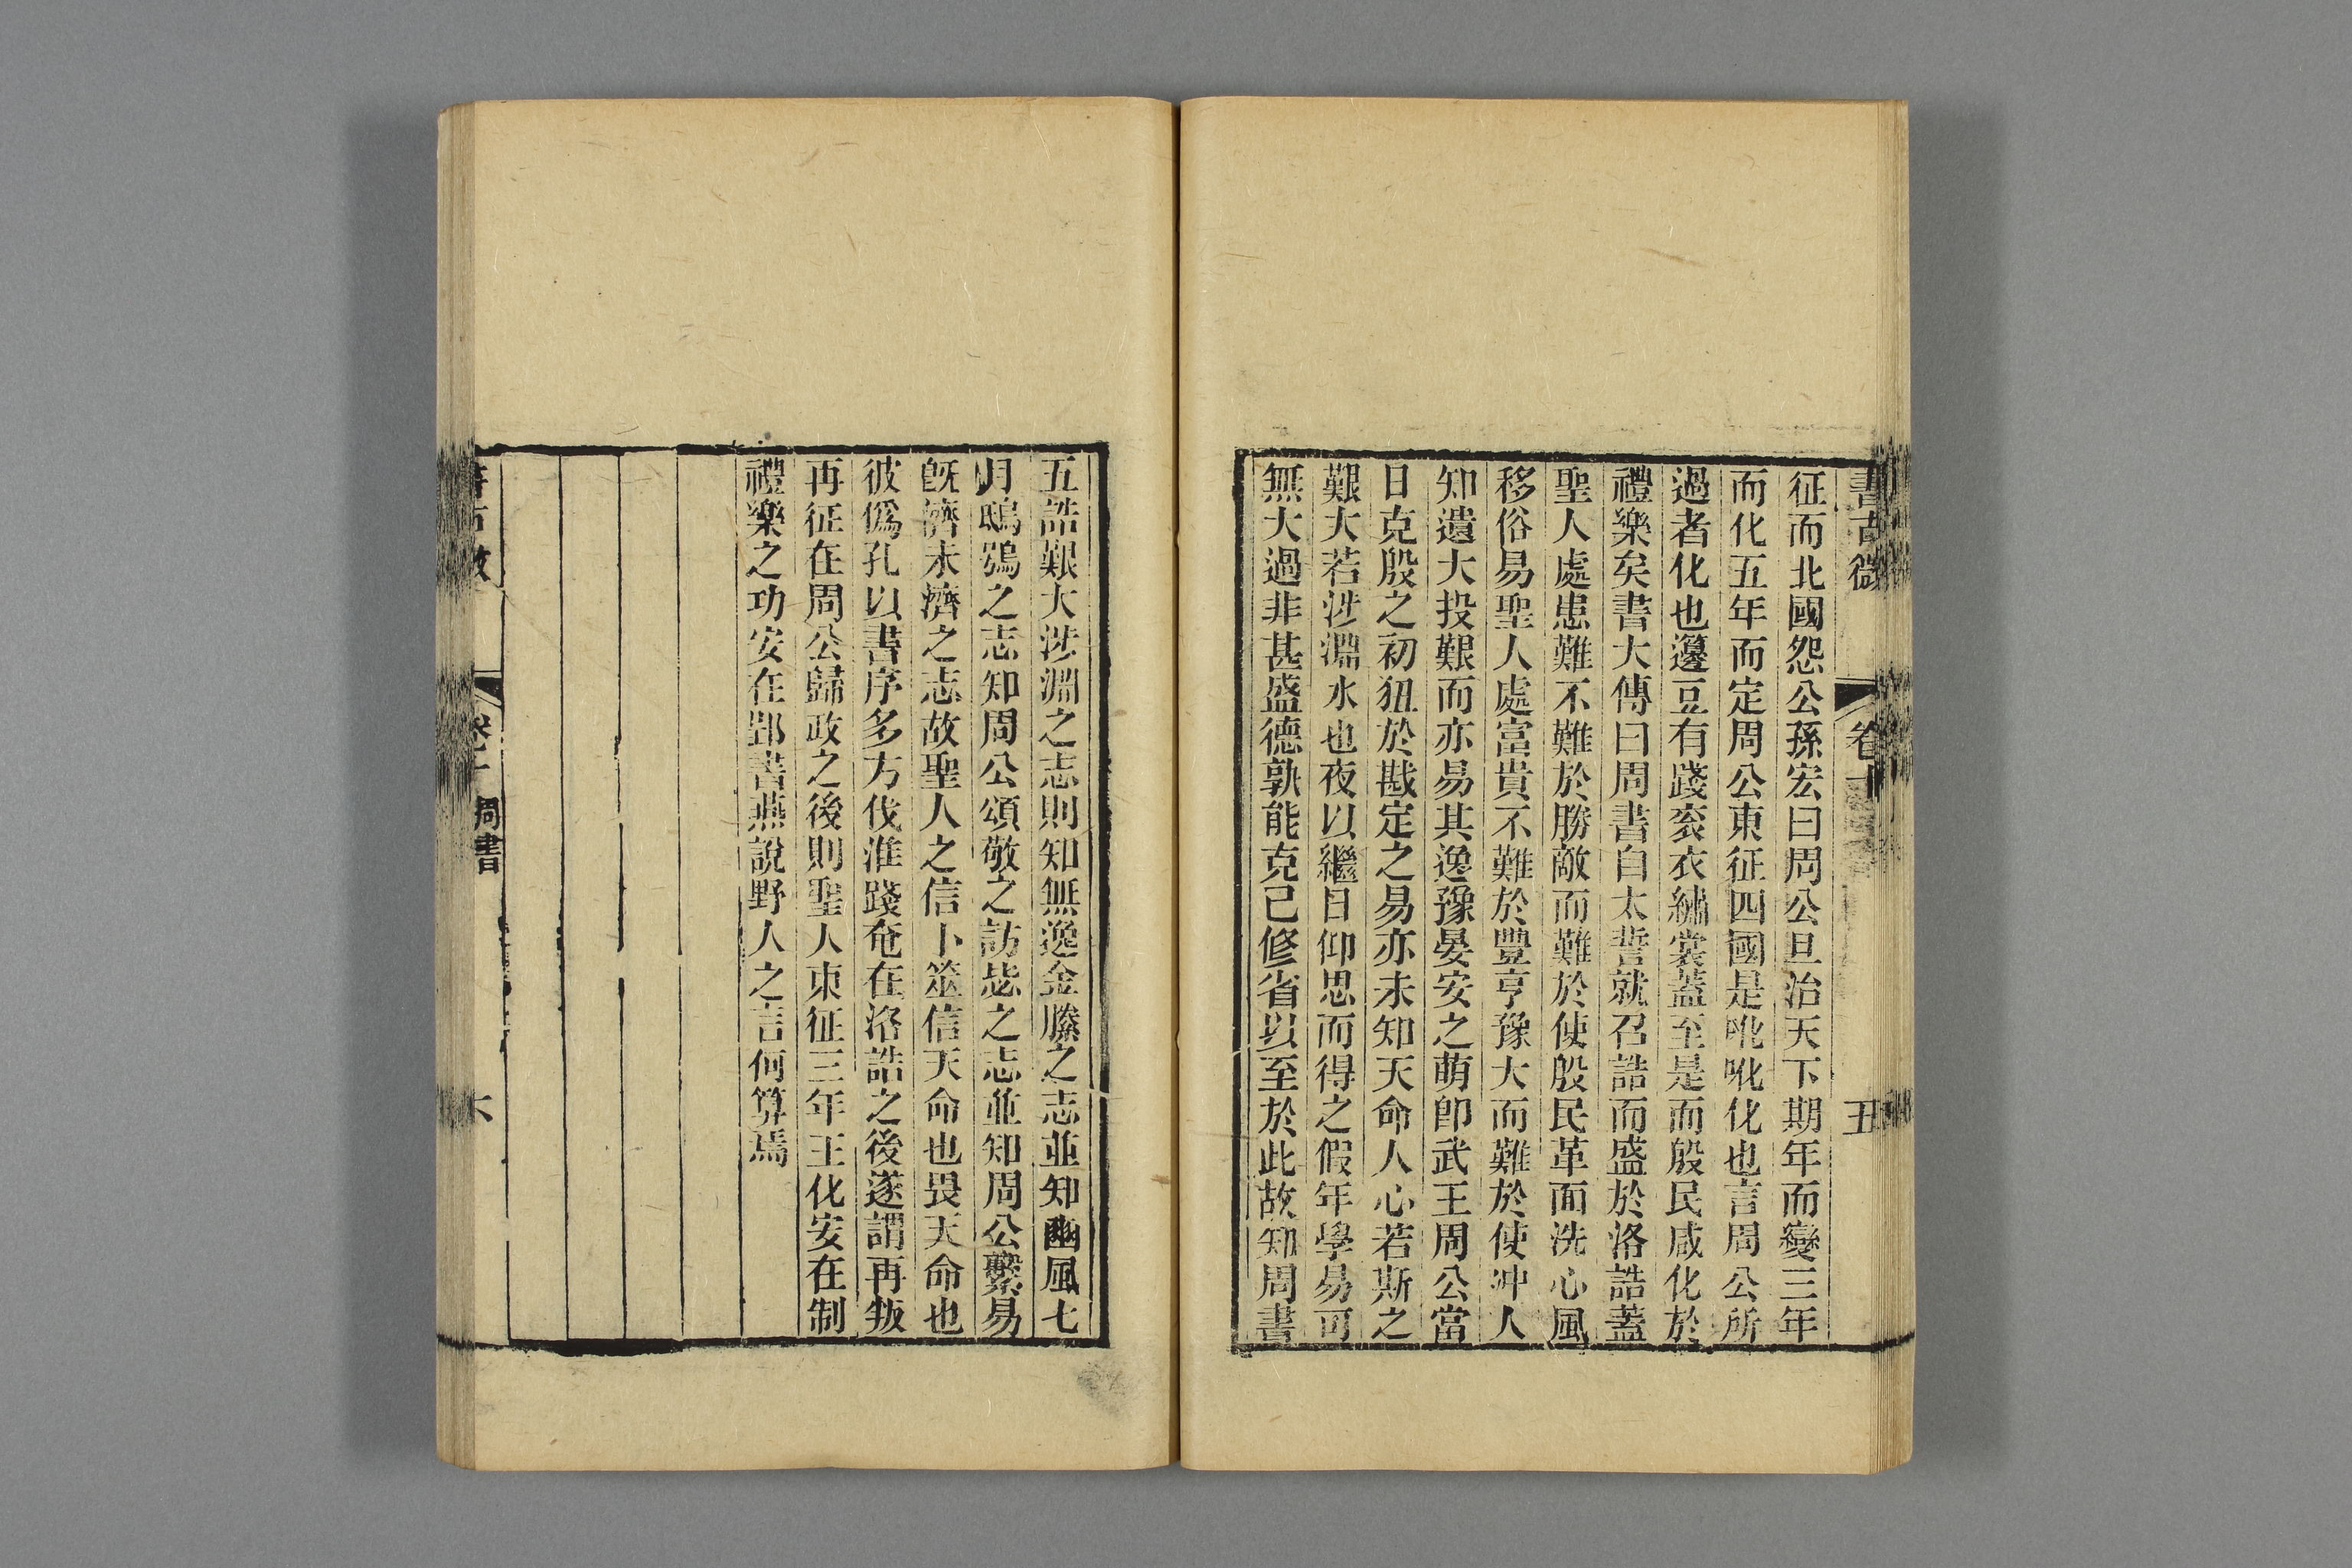 書古微 卷十 五
征而北國怨公孫宏曰周公旦治天下期年而變三年
而化五年而定周公東征四國是吪吪化也言周公所
過者化也籩豆有踐袞衣繡裳蓋至是而殷民咸化於
禮樂矣書大傳曰周書自太誓就召誥而盛於洛誥蓋
聖人處患難不難於勝敵而難於使殷民革面洗心風
移俗易聖人處富貴不難於豐亨豫大而難於使沖人
知遺大投艱而亦易其逸豫晏安之萌卽武王周公當
日克殷之初狃於戡定之易亦未知天命人心若斯之
艱大若涉淵水也夜以繼日仰思而得之假年學易可
無大過非甚盛德孰能克己修省以至於此故知周書
五誥艱大涉淵之志則知無逸金縢之志並知豳風七
月鴟鴞之志知周公頌敬之訪毖之志並知周公繫易
旣濟未濟之志故聖人之信卜筮信天命也畏天命也
彼僞孔以書序多方伐淮踐奄在洛誥之後遂謂再叛
再征在周公歸政之後則聖人東征三年王化安在制
禮樂之功安在郢書燕說野人之言何算焉
書古微 卷十 周書 六